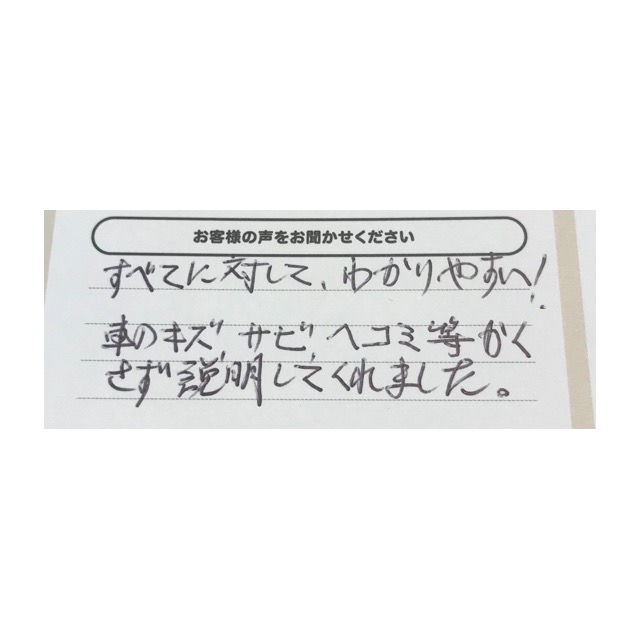 お客様の声をお聞かせください
すべてに対して、わかりやすい!
車のキズ、サビ、ヘコミ等かく
さず説明してくれました。